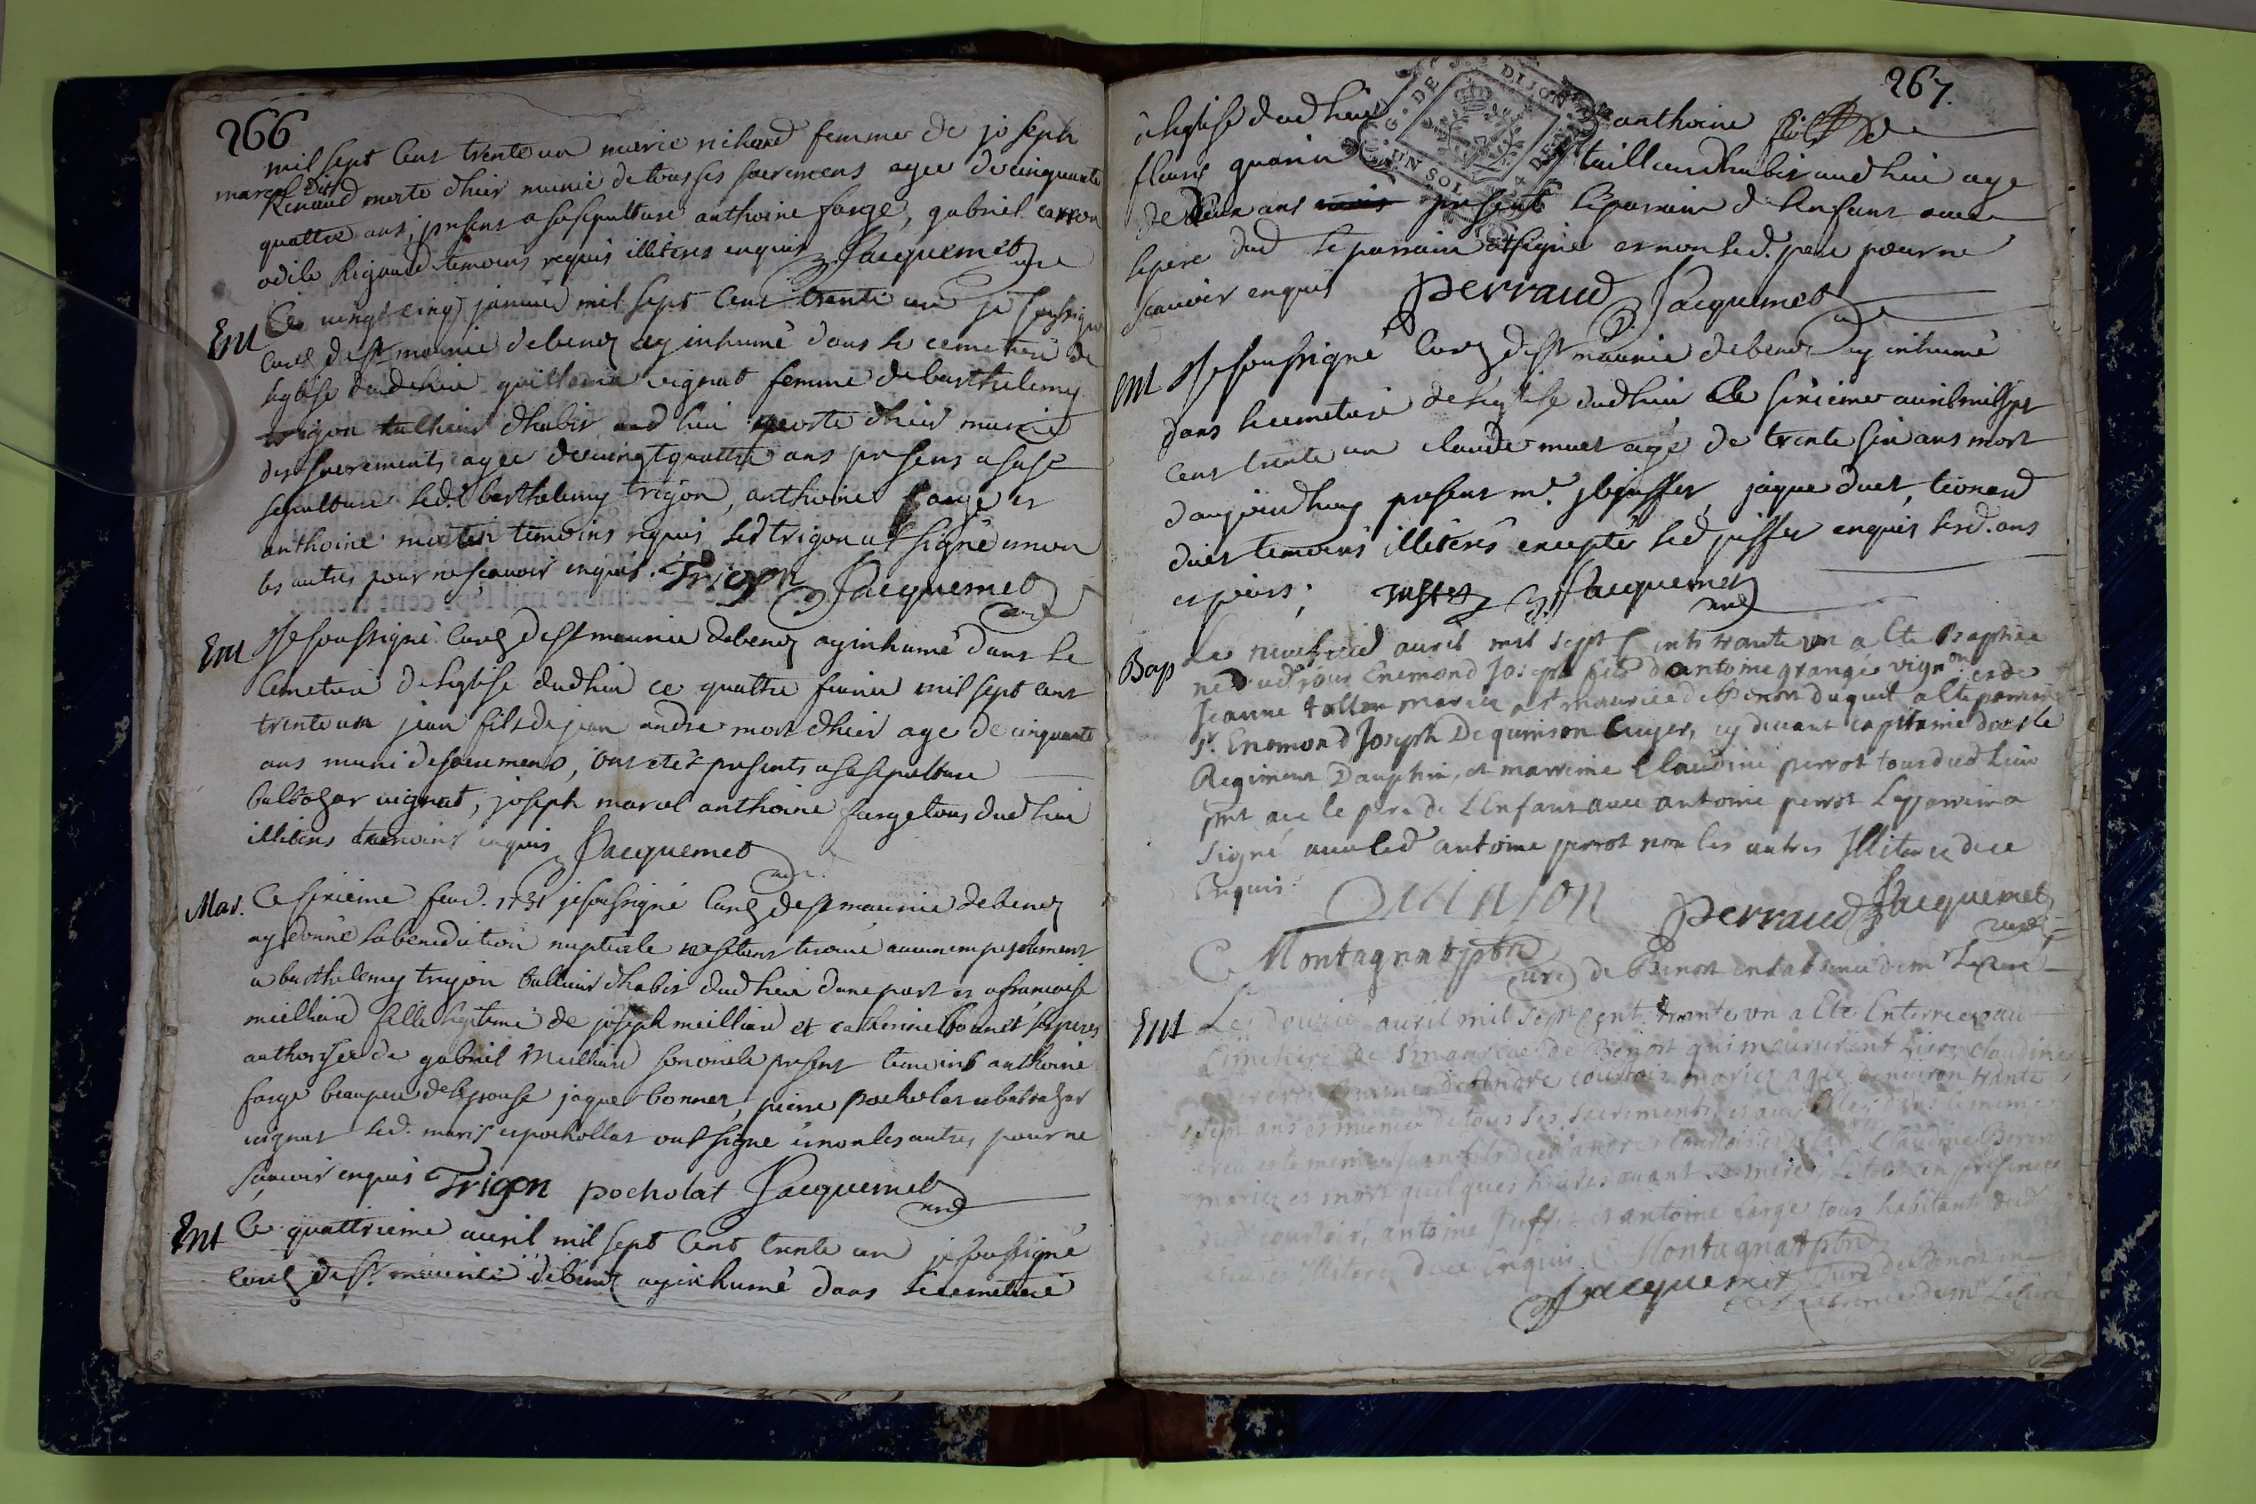 266
mil sept cent trente un marie richard femme de joseph
marcel dit
Renaud morte d'hier munie de tous ses sacremens agee de cinquante
quattre ans, presens a sa sepulture anthoine farge, gabriel carron
odile Rigaud temoins requis illiterés enquis Jacquemet
curé
Ent Ce vingt cinq janvier mil sept cent trente un je soussigné
curé de st maurice de benoz ay inhumé dans le cemetiere de
leglise dud lieu guillemà vignat femme de barthelemy
trigon tallieur d'habis dud lieu morte d'hier munie
des sacrements agee de vingt quattre ans presens a sa sé
sepulture led. barthelemy trigon, anthoine farge et
anthoine martin temoins requis led trigon a signé e non
les autres pour ne scavoir enquis. Trigon Jacquemet
curé
Ent Je soussigné curé de st maurice de benoz ay inhumé dans le
cemetiere de leglise dud lieu ce quattre fevrier mil sept cent
trente un jean fils de jean andre mort d'hier agé de cinquante
ans muni de sacremens, ont étéz presents a sa sepulture
baltazar vignat, joseph marcel anthoine farge tous dud lieu
illiterés temoins enquis Jacquemet
curé
Mar. Ce sixieme fevr. 1731 je soussigné curé de st maurice de benoz
ay donné la benediction nuptiale ne sestant trouvé aucun empechement
a barthelemy trigon tallieur d'habis dud lieu d'une part et a francoise
meilliard fille legitime de joseph meilliard et catherine bonnet ses peres
authorisée de gabriel meilliard son oncle present temoins anthoine
farge beaupere de lepouse jaque bonnet, pierre pocholat e baltazar
vignat led. maris e pochollat ont signé e non les autres pour ne
scavoir enquis Trigon pocholat Jacquemet
curé
Ent Ce quattrieme avril mil sept cent trente un je soussigné
curé de st. maurice de benoz ay inhumé dans le cemetiere
267.
de leglise dud lieu anthoine fils de
fleury guarin taillieur d'habis aud lieu agé
de deux ans present le parrain de lenfant avec
le pere dud le parrain a signé e non led. pere pour ne
scavoir enquis perraud Jacquemet
Ent Je soussigné curé de st maurice de benoz ay inhumé
dans le cemetiere de leglise dud lieu le sixieme avril mil sept
cent trente un claude muet agé de trente six ans mort
d'aujourd'huy present me. juffet, jaque duet, leonard
duet temoins illiterés excepté led juffet enquis lesd. ans
et jours; Juffet Jacquemet
curé
Bap Le neufvie avril mil sept cents trante un a été Baptisé
né dud jour Enemond Joseph fils d'antoine grange vignon. et de
Jeanne tallon mariez a st maurice de Benost duquel a été parrain
sr. Enemond Joseph De quinson Ecuyer, cy devant capitaine dans le
Regiment Dauphin, et marreine Claudine perrot tous dud lieu
pnt avec le pere de L'Enfant avec antoine perrot Le parrein a
signé avec led antoine perrot non les autres Illiterez de ce
Enquis. Quinson
perraud Jacquemet
curé
C Montagnat ptre
curé de Benost en labsence de mr Le curé
Ent Le douzie avril mil sept cent trante un a été Enterree au
Cimetiere de st maurice de Benost qui moururent hier claudine
femme de Andre courtois mariez agée denviron trante
sept ans et munie de tous ses sacrements
mariez et mort quelques heures avant sa mere, Le tout en presence
dud courtois, antoine Juffet et antoine farge tous habitants dud
lieu Illiterez de ce Enquis C Montagnat ptre
Jacquemet curé de Benost en
labsence de mr Le curé